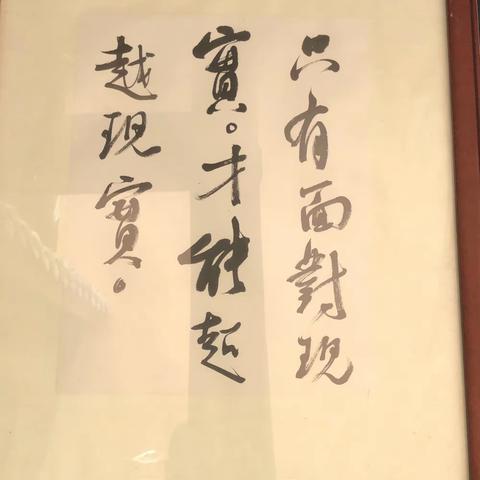 只有面對現
實。才能超
越現實。